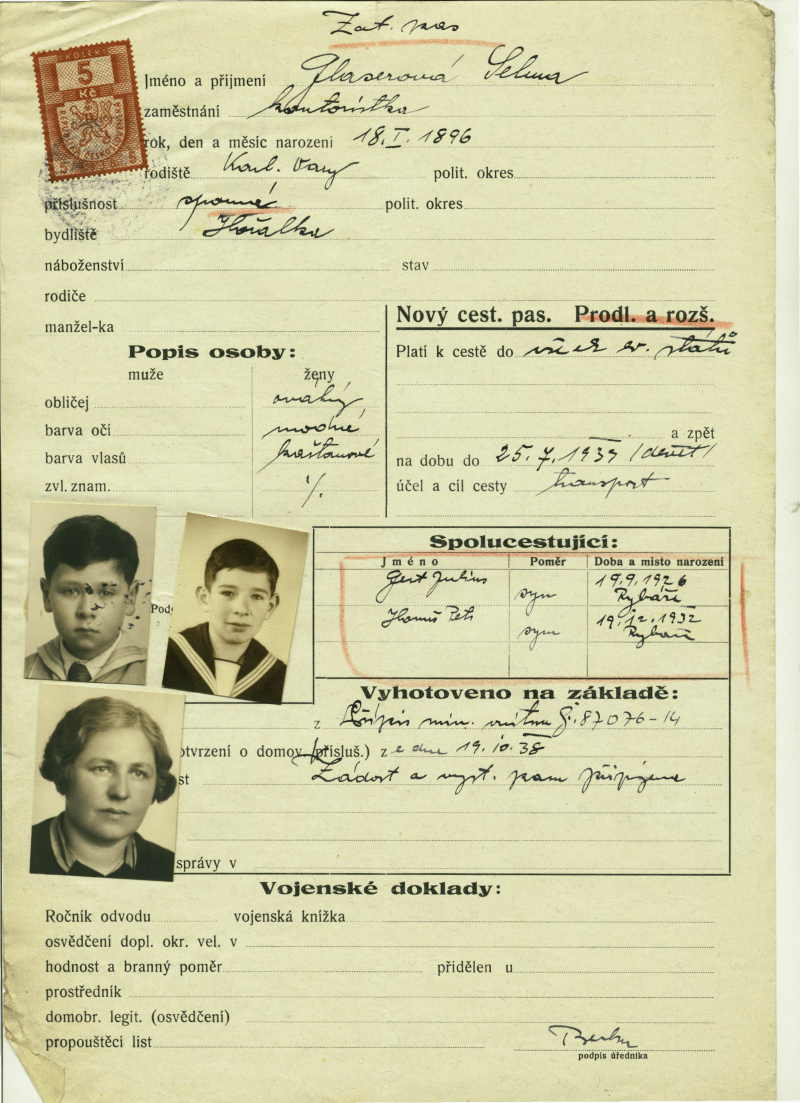 Zat. pas
5
Kč
Jméno a přijmení Glaserová Selma
zaměstnání kontoristka
rok, den a měsíc narození 18. I. 1896
rodiště Karl. Vary polit. okres
příslušnost sporné polit. okres
bydliště
náboženství stav
rodiče
manžel-ka
Nový cest. pas. Prodl. a rozš.
Platí k cestě do všech ev. států
a zpět
na dobu do 25. 7. 1939
účel a cíl cesty transport
Popis osoby:
muže ženy
obličej oválný
barva očí modré
barva vlasů kaštanové
zvl. znam. %
Spolucestující:
Jméno Poměr Doba a místo narození
Gert Julius syn 19. 9. 1926
Rybáře
Hanuš Petr syn 19. 12. 1932
Rybáře
Vyhotoveno na základě:
z Přípis min. vnitra č. 87076-14
otvrzení o domov. (přísluš.) z e dne 19. 10. 38
st Žádost a vyst. pasu připojena
správy v
Vojenské doklady:
Ročník odvodu vojenská knížka
osvědčení dopl. okr. vel. v
hodnost a branný poměr přidělen u
prostředník
domobr. legit. (osvědčení)
propouštěcí list
podpis úředníka